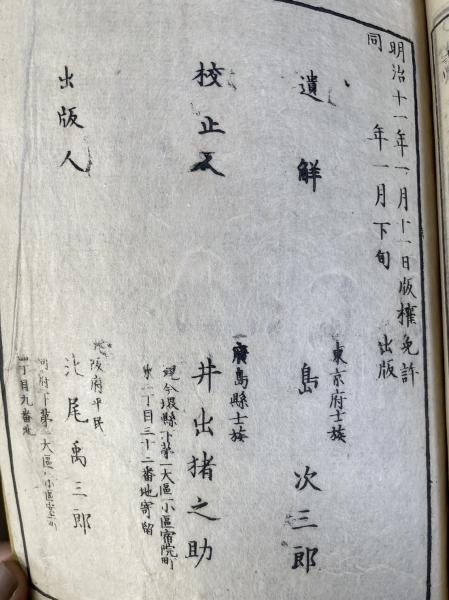 明治十一年一月十一日版權免許
同 年一月下旬 出版
東京府士族
遺解 島 次三郎
廣島縣士族
校正人 井出猪之助
現今堺縣下第一大區一小區宿院町
二丁目三十二番地寄留
阪府平民
出版人 尾禹三郎
府下第一大區一小區
丁目九番地